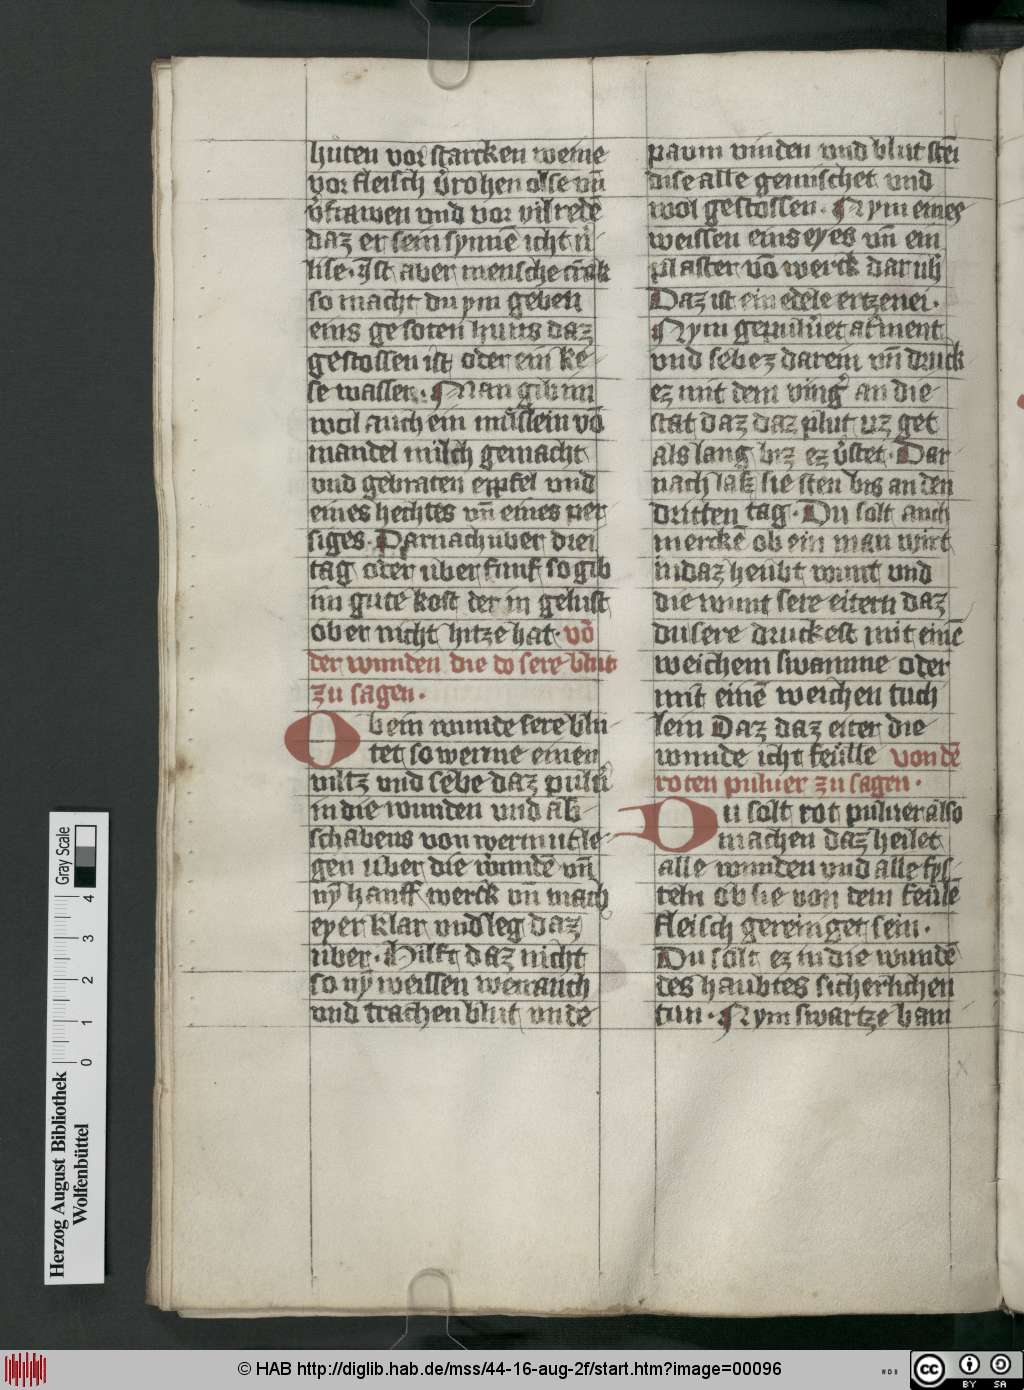 huten vor starcken weine
vor fleisch v̓rohen olse vn̄
v̓frawen vnd vor vil redē
daz er sein synnē icht v̓
lise. Ist aber mensche
so macht du ym geben
eins gesoten huns daz
gestossen ist oder ein ke
se wasser. Man gib im
wol auch ein muslein vō
mandel milch gemacht
vnd gebraten eppfel vnd
eines hechtes vn̄ eines per
siges. Darnach uber drei
tag oder uber funf so gib
im gute kost der in gelust
ober nicht hitze hat. vō
der wunden die do sere blut
zu sagen.
Ob ein wunde sere blu
tet so werme einen
viltz vnd sebe daz pulū
in die wunden vnd ab
schabens von wermut le
gen uber die wundē vn̄
ny̅ hanff werck vn̄ mach
eyer klar vnd leg daz
uber. Hilft daz nicht
so ny̅ weissen weirauch
vnd trachen blut vnde
paum vinden vnd blut stei
dise alle gemischet vnd
wol gestossen. Nym eines
weissen eins eyes vn̄ ein
plaster vō werck dar ub̓
Daz ist ein edele ertzenei.
Nym gepulūet atment
vnd sebez darein vn̄ druck
ez mit dem ving̓ an die
stat daz daz plut uz get
als lang biz ez v̓stet. Dar
nach laz sie sten bis an den
dritten tag. Du solt auch
merckē ob ein man wirt
in daz heubt wunt vnd
die wunt sere eitert daz
du sere druckest mit einē
weichem swamme oder
mit einē weichen tuch
lein Daz daz eiter die
wunde icht feulle von dē
roten puluer zu sagen.
Du solt rot puluer also
machen daz heilet
alle wunden vnd alle fys
teln ob sie von dem feulē
fleisch gereiniget sein.
Du solt ez in die wundē
des haubtes sicherlichen
tun. Nym swartze bam
Herzog August Bibliothek
Wolfenbüttel
0 1 2 3 4
Gray Scale
© HAB http://diglib.hab.de/mss/44-16-aug-2f/start.htm?image=00096
WDB
cc BY SA